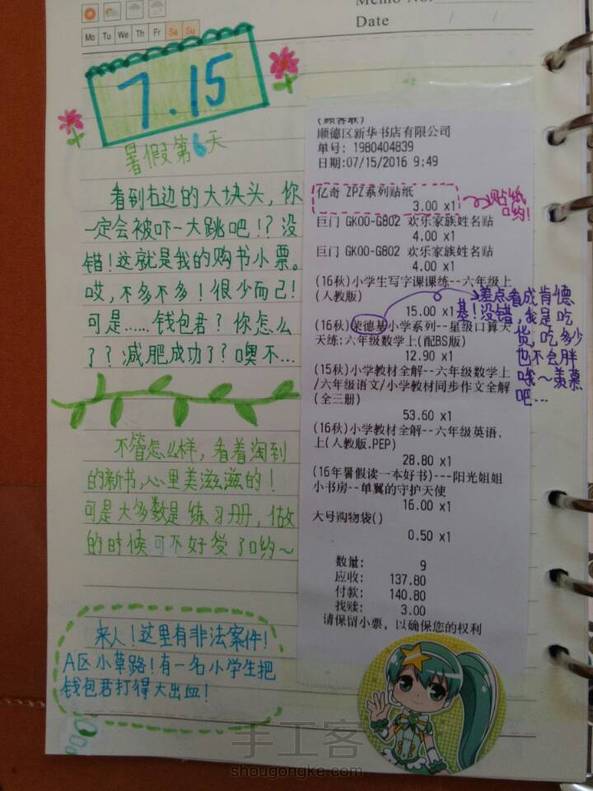 Memo No.
Date / /
Mo Tu We Th Fr Sa Su
7.15
暑假第6天
看到右边的大块头，你
一定会被吓一大跳吧！？没
错！这就是我的购书小票。
哎，不多不多！很少而已！
可是……钱包君？你怎么
了？减肥成功了？噢不…
不管怎么样，看着淘到
的新书，心里美滋滋的！
可是大多数是练习册，做
的时候可不好受了哟~
来人！这里有非法案件！
A区小草路！有一名小学生把
钱包君打得大出血！
(顾客联)
顺德区新华书店有限公司
单号: 1980404839
日期:07/15/2016 9:49
亿奇 ZPZ系列贴纸
3.00 x1
贴纸
哟！
巨门 GK00-G802 欢乐家族姓名贴
4.00 x1
巨门 GK00-G802 欢乐家族姓名贴
4.00 x1
(16秋)小学生写字课课练--六年级上
(人教版)
15.00 x1
(16秋)荣德基小学系列--星级口算天
天练:六年级数学上(配BS版)
12.90 x1
差点看成肯德
基！没错，我是吃
货，吃多少
也不会胖
哦~羡慕
吧…
(15秋)小学教材全解--六年级数学上
/六年级语文/小学教材同步作文全解
(全三册)
53.60 x1
(16秋)小学教材全解--六年级英语.
上(人教版.PEP)
28.80 x1
(16年暑假读一本好书)---阳光姐姐
小书房--单翼的守护天使
16.00 x1
大号购物袋()
0.50 x1
数量: 9
应收: 137.80
付款: 140.80
找赎: 3.00
请保留小票，以确保您的权利
手工客
shougongke.com